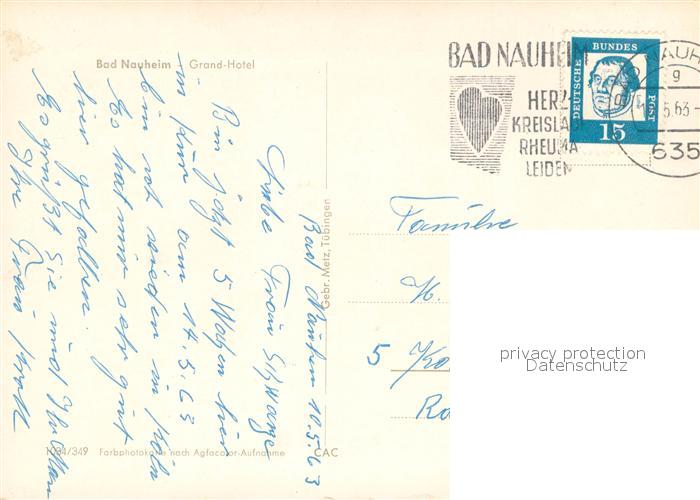 Bad Nauheim Grand-Hotel
BAD NAUHEIM
HERZ-
KREISLAUF
RHEUMA
LEIDEN
DEUTSCHE
BUNDES
POST
15
g
5.63
635
Bad Nauheim 10.5.63
Liebe Frau
Bin jetzt 5 Wochen hier
in Kur am 17.5.63
bin ich wieder in Köln
Es hat mir sehr gut
hier gefallen.
Es grüßt Sie und Ihr
Ihre Frau
Gebr. Metz, Tübingen
Familie
H.
5 Ko
Ra
privacy protection
Datenschutz
1034/349 Farbphotokarte nach Agfacolor-Aufnahme CAC